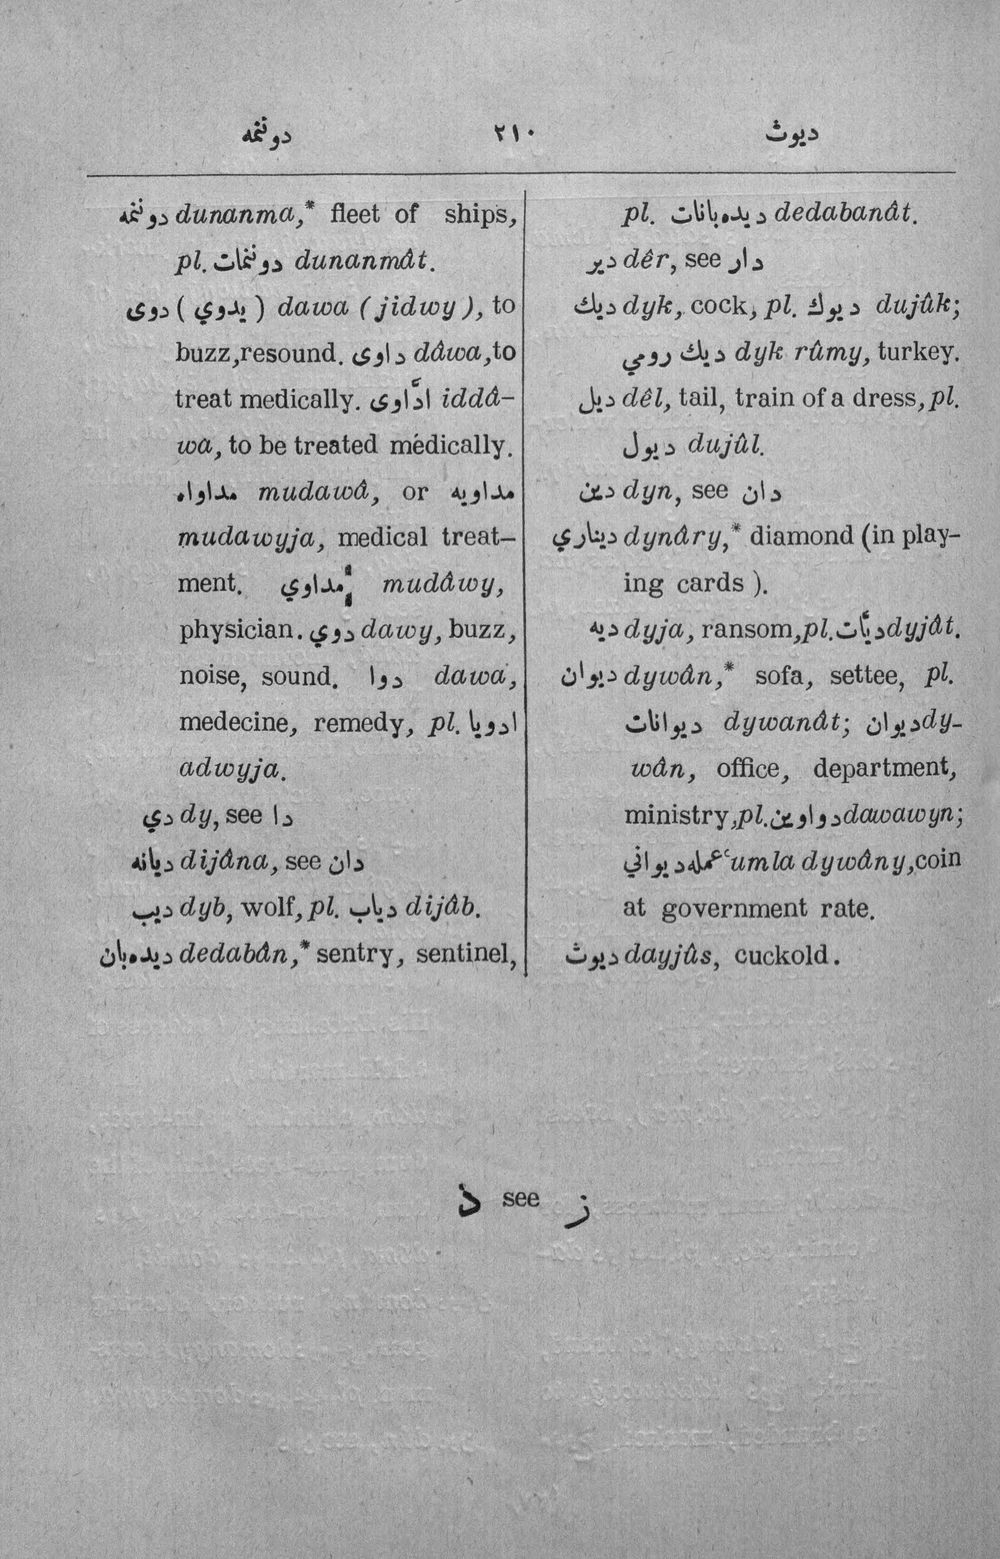 دوننمه ٢١٠ ديوث
دوننمه dunanma,* fleet of ships,
pl. دوننمات dunanmât.
دوى ( يدوي ) dawa ( jidwy ), to
buzz,resound. داوى dâwa,to
treat medically. ادّاوى iddâ-
wa, to be treated medically.
مداواه mudawâ, or مداويه
mudawyja, medical treat-
ment. مداوي mudâwy,
physician. دوي dawy, buzz,
noise, sound. دوا dawa,
medecine, remedy, pl. ادويا
adwyja.
دي dy, see دا
ديانه dijâna, see دان
ديب dyb, wolf, pl. دياب dijâb.
ديدهبان dedabân,* sentry, sentinel,
pl. ديدهبانات dedabanât.
دير dêr, see دار
ديك dyk, cock, pl. ديوك dujûk;
ديك رومي dyk rûmy, turkey.
ديل dêl, tail, train of a dress, pl.
ديول dujûl.
دين dyn, see دان
ديناري dynâry,* diamond (in play-
ing cards ).
ديه dyja, ransom,pl. ديّات dyjât.
ديوان dywân,* sofa, settee, pl.
ديوانات dywanât; ديوان dy-
wân, office, department,
ministry,pl. دواوين dawawyn;
عمله ديواني ʿumla dywâny,coin
at government rate.
ديوث dayjûs, cuckold.
ذ see ز